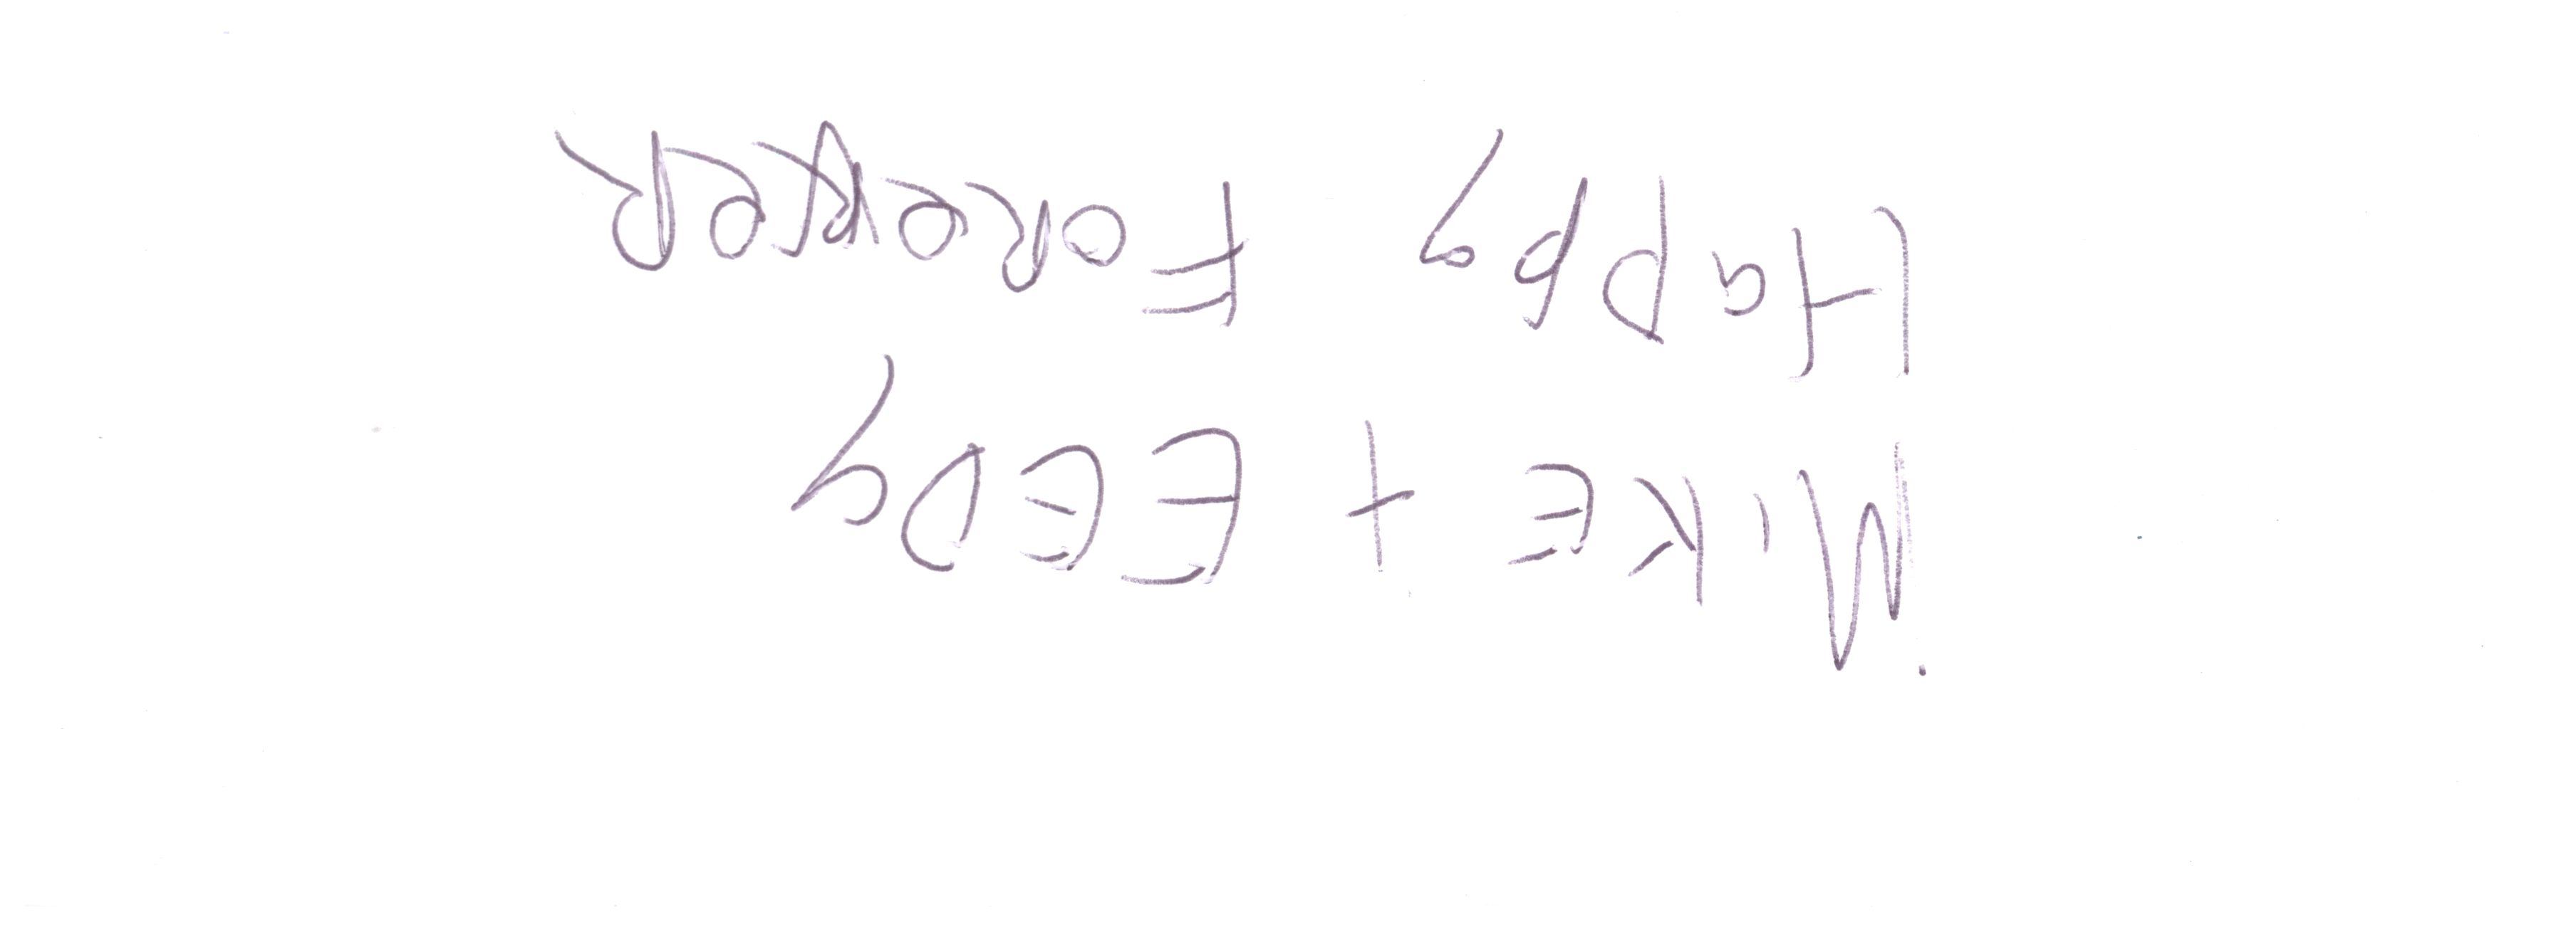 MiKE + EEDy
Happy ForeveR